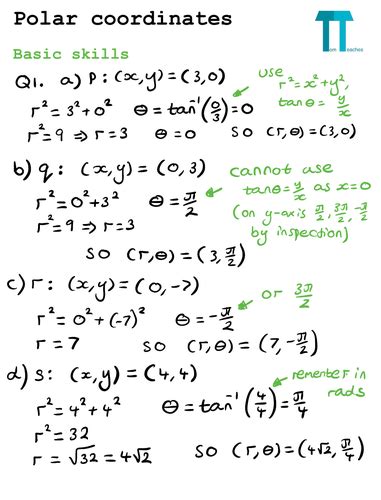 Polar coordinates
Tom Teaches
Basic skills
Q1. a) P: (x,y) = (3,0)
use r² = x² + y², tanθ = y/x
r² = 3² + 0² θ = tan⁻¹(0/3) = 0
r² = 9 ⇒ r = 3 θ = 0 so (r,θ) = (3,0)
b) q: (x,y) = (0,3)
cannot use
r² = 0² + 3² θ = π/2
tanθ = y/x as x=0
r² = 9 ⇒ r = 3
(on y-axis π/2, 3π/2, -π/2
by inspection)
so (r,θ) = (3, π/2)
c) r: (x,y) = (0,-7)
or 3π/2
r² = 0² + (-7)² θ = -π/2
r = 7 so (r,θ) = (7, -π/2)
d) s: (x,y) = (4,4)
remember in
rads
r² = 4² + 4² θ = tan⁻¹(4/4) = π/4
r² = 32
r = √32 = 4√2 so (r,θ) = (4√2, π/4)